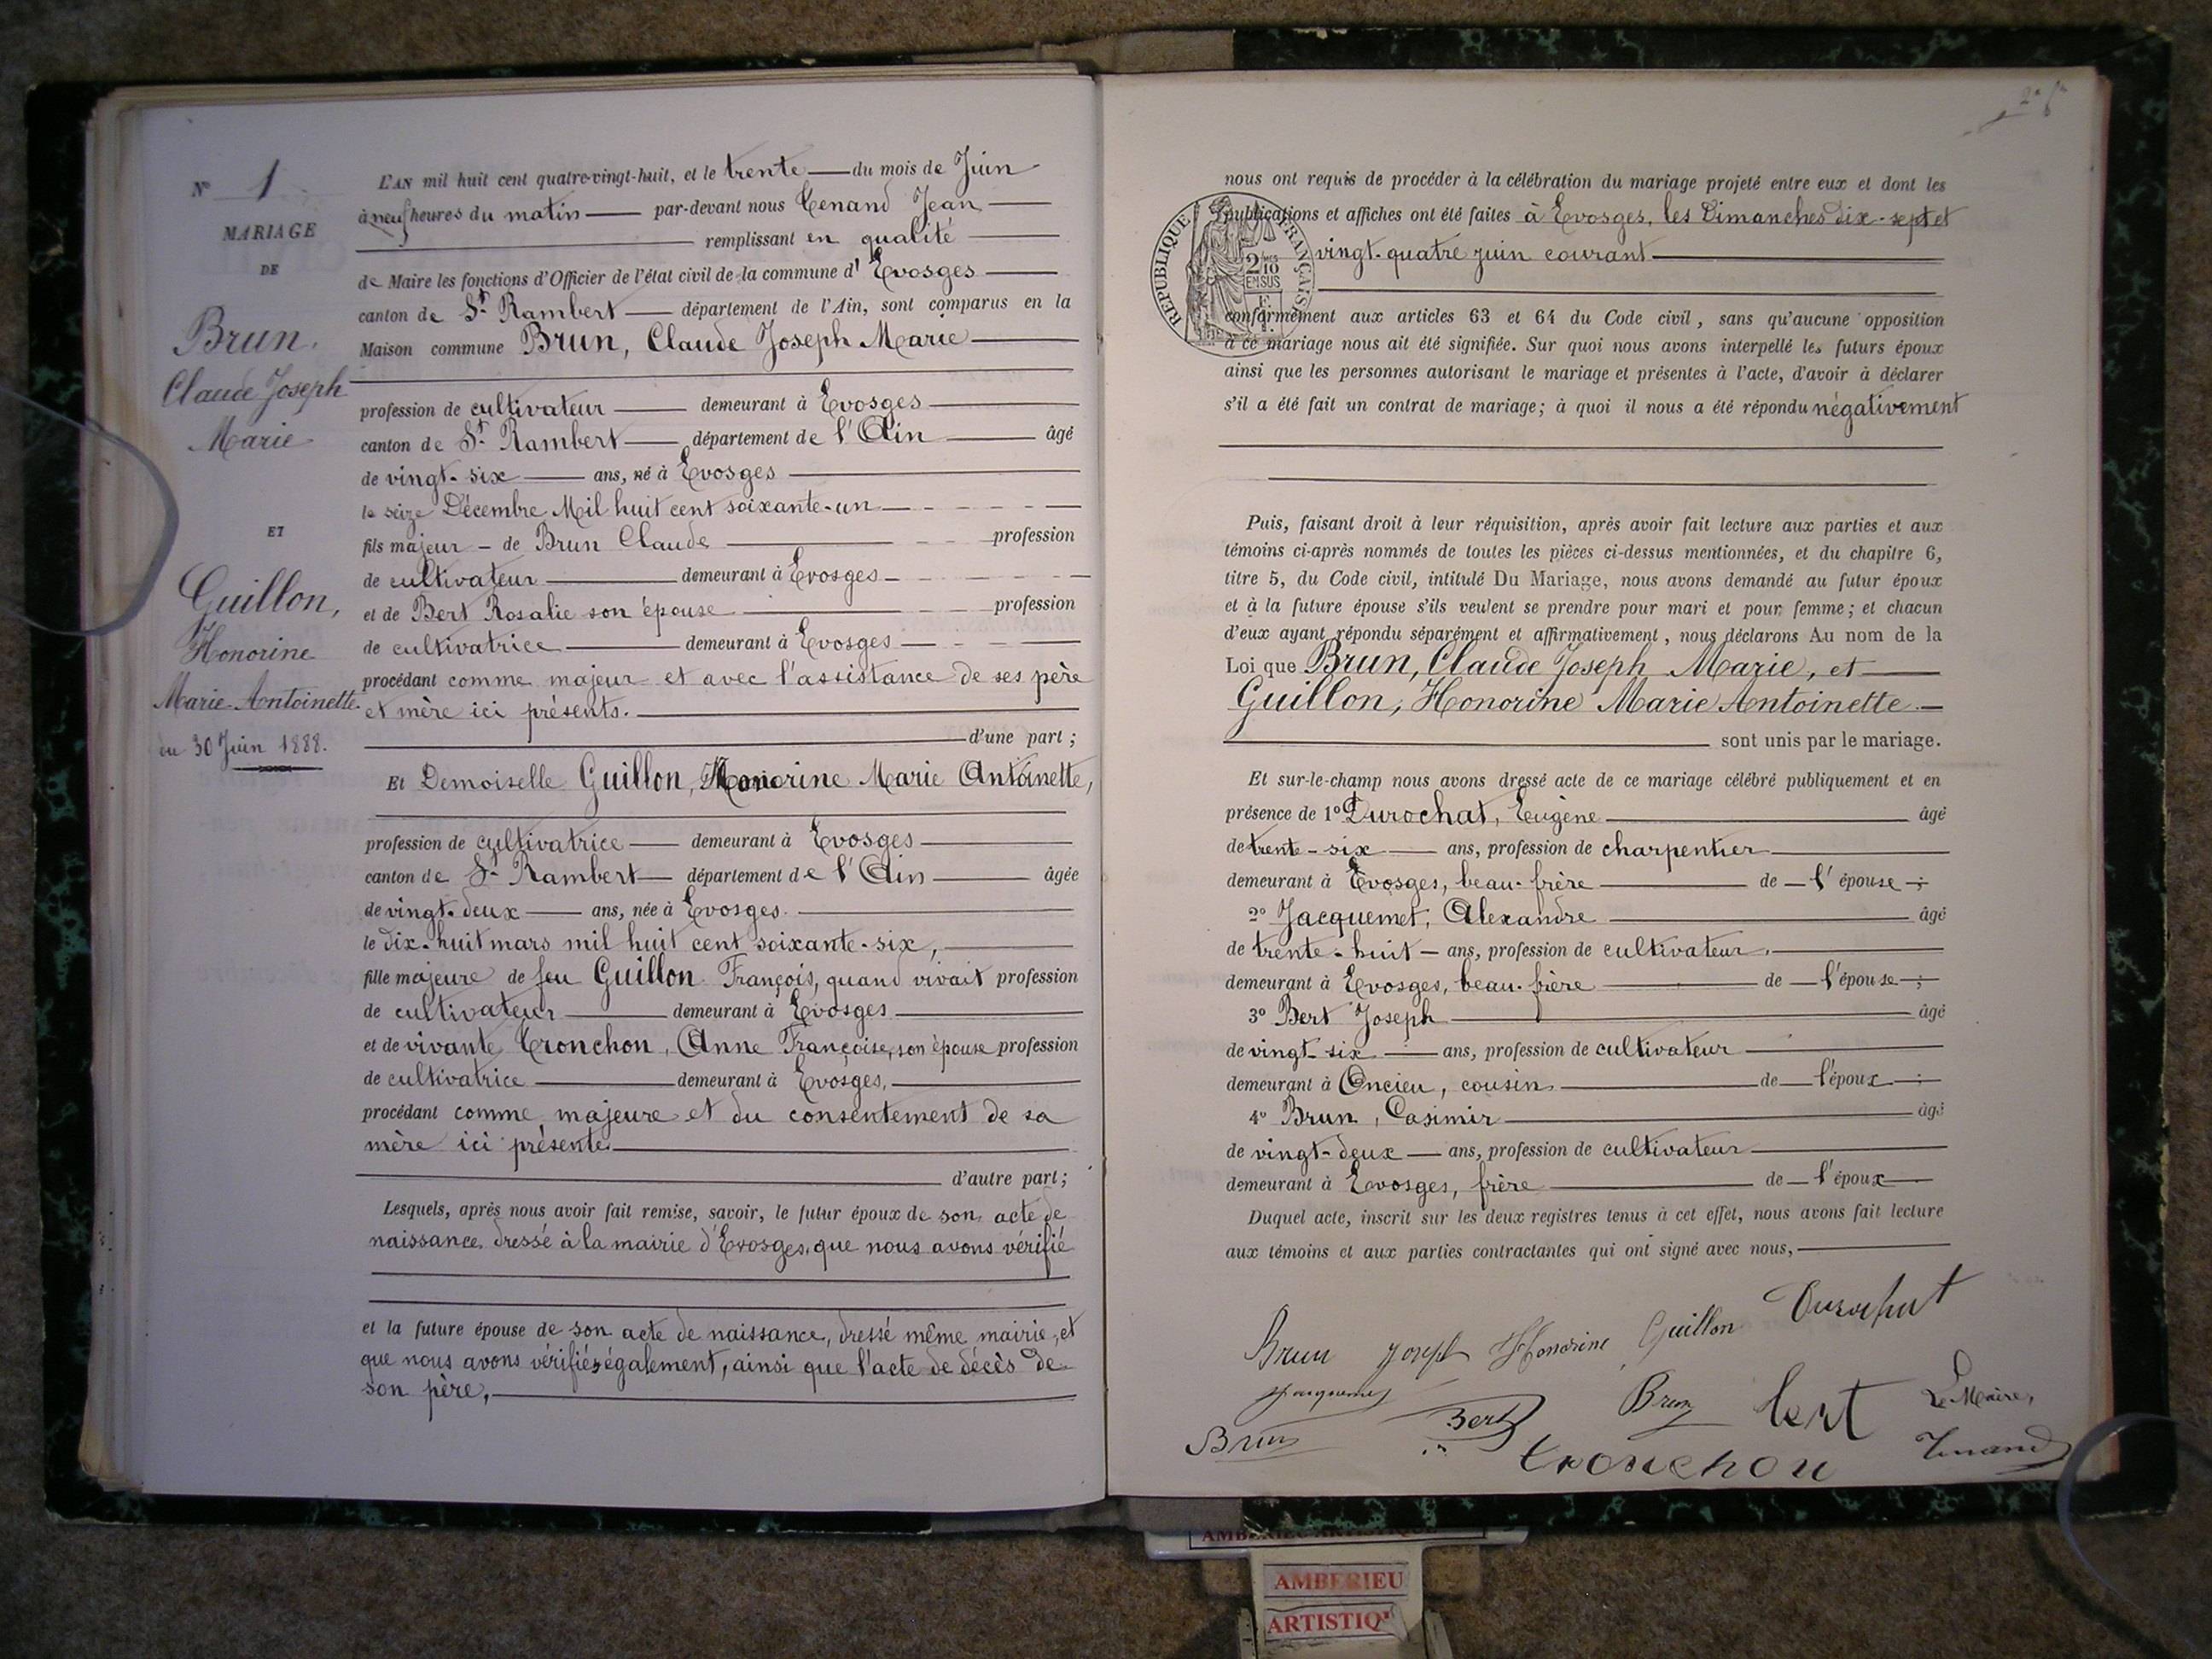 N° 1
MARIAGE
DE
Brun,
Claude Joseph
Marie
ET
Guillon,
Honorine
Marie Antoinette
du 30 Juin 1888.
L'AN mil huit cent quatre-vingt-huit, et le trente du mois de Juin
à neuf heures du matin par-devant nous Tenand Jean
remplissant en qualité
de Maire les fonctions d'Officier de l'état civil de la commune d'Evosges
canton de St Rambert département de l'Ain, sont comparus en la
Maison commune Brun, Claude Joseph Marie
profession de cultivateur demeurant à Evosges
canton de St Rambert département de l'Ain âgé
de vingt-six ans, né à Evosges
le seize Décembre Mil huit cent soixante-un
fils majeur - de Brun Claude profession
de cultivateur demeurant à Evosges
et de Bert Rosalie son épouse profession
de cultivatrice demeurant à Evosges
procédant comme majeur et avec l'assistance de ses père
et mère ici présents.
d'une part ;
Et Demoiselle Guillon, Honorine Marie Antoinette,
profession de cultivatrice demeurant à Evosges
canton de St Rambert département de l'Ain âgée
de vingt-deux ans, née à Evosges.
le dix-huit mars mil huit cent soixante-six,
fille majeure de feu Guillon François, quand vivait profession
de cultivateur demeurant à Evosges
et de vivante Tronchon, Anne Françoise, son épouse profession
de cultivatrice demeurant à Evosges,
procédant comme majeure et du consentement de sa
mère ici présente
d'autre part ;
Lesquels, après nous avoir fait remise, savoir, le futur époux de son acte de
naissance, dressé à la mairie d'Evosges, que nous avons vérifié
et la future épouse de son acte de naissance, dressé même mairie, et
que nous avons vérifiés également, ainsi que l'acte de décès de
son père,
nous ont requis de procéder à la célébration du mariage projeté entre eux et dont les
publications et affiches ont été faites à Evosges, les Dimanches dix-sept et
vingt-quatre juin courant
RÉPUBLIQUE FRANÇAISE
2/10
EN SUS
conformément aux articles 63 et 64 du Code civil, sans qu'aucune opposition
à ce mariage nous ait été signifiée. Sur quoi nous avons interpellé les futurs époux
ainsi que les personnes autorisant le mariage et présentes à l'acte, d'avoir à déclarer
s'il a été fait un contrat de mariage ; à quoi il nous a été répondu négativement
Puis, faisant droit à leur réquisition, après avoir fait lecture aux parties et aux
témoins ci-après nommés de toutes les pièces ci-dessus mentionnées, et du chapitre 6,
titre 5, du Code civil, intitulé Du Mariage, nous avons demandé au futur époux
et à la future épouse s'ils veulent se prendre pour mari et pour femme ; et chacun
d'eux ayant répondu séparément et affirmativement, nous déclarons Au nom de la
Loi que Brun, Claude Joseph Marie, et
Guillon, Honorine Marie Antoinette
sont unis par le mariage.
Et sur-le-champ nous avons dressé acte de ce mariage célébré publiquement et en
présence de 1° Durochat, Eugène âgé
de trente-six ans, profession de charpentier
demeurant à Evosges, beau-frère de l'épouse ;
2° Jacquemet, Alexandre âgé
de trente-huit ans, profession de cultivateur
demeurant à Evosges, beau-frère de l'épouse ;
3° Bert Joseph âgé
de vingt-six ans, profession de cultivateur
demeurant à Oncieu, cousin de l'époux ;
4° Brun, Casimir âgé
de vingt-deux ans, profession de cultivateur
demeurant à Evosges, frère de l'époux
Duquel acte, inscrit sur les deux registres tenus à cet effet, nous avons fait lecture
aux témoins et aux parties contractantes qui ont signé avec nous,
Brun Joseph Honorine Guillon Durochat
Jacquemet Brun bert Le Maire,
Brun Bert Tenand
tronchon
AMBERIEU ARTISTIQUE
AMBERIEU
ARTISTIQ